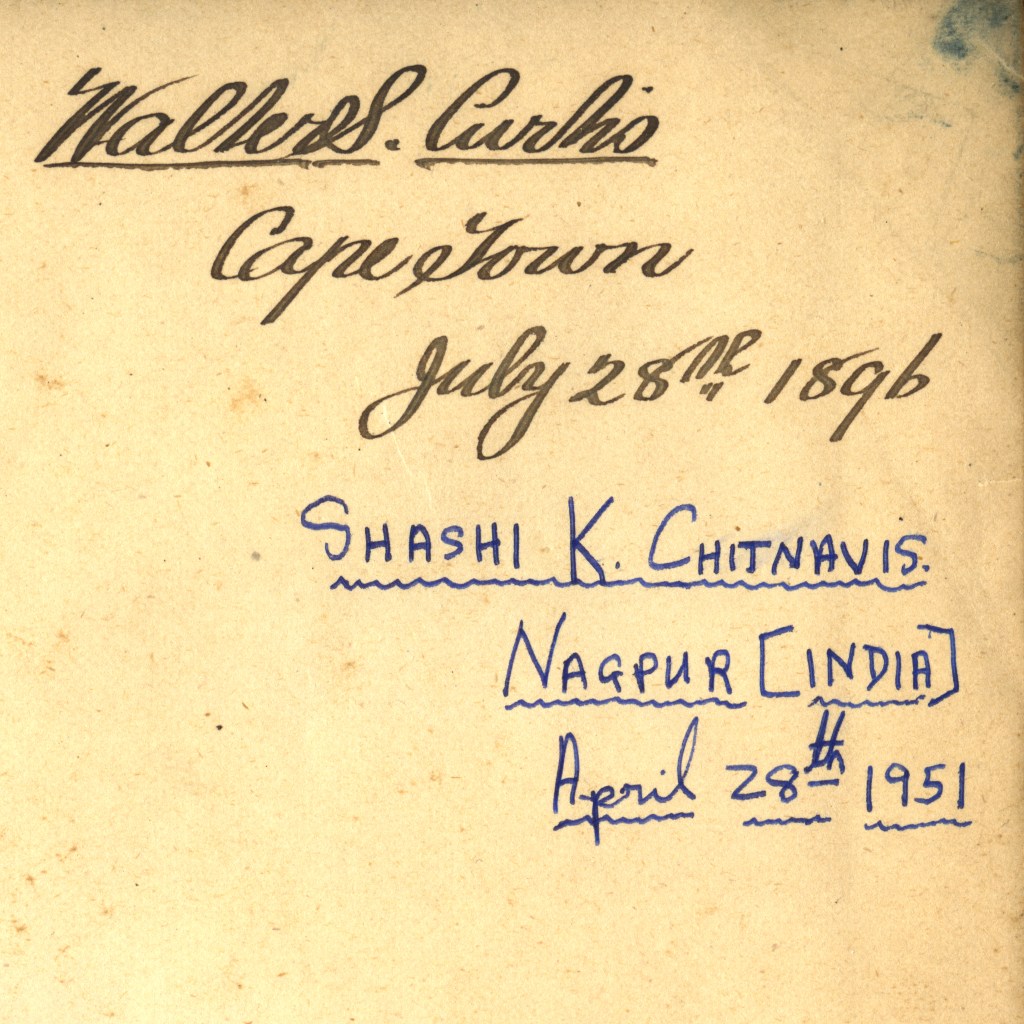 Walter S. Curtis
Cape Town
July 28th 1896
SHASHI K. CHITNAVIS.
NAGPUR [INDIA]
April 28th 1951